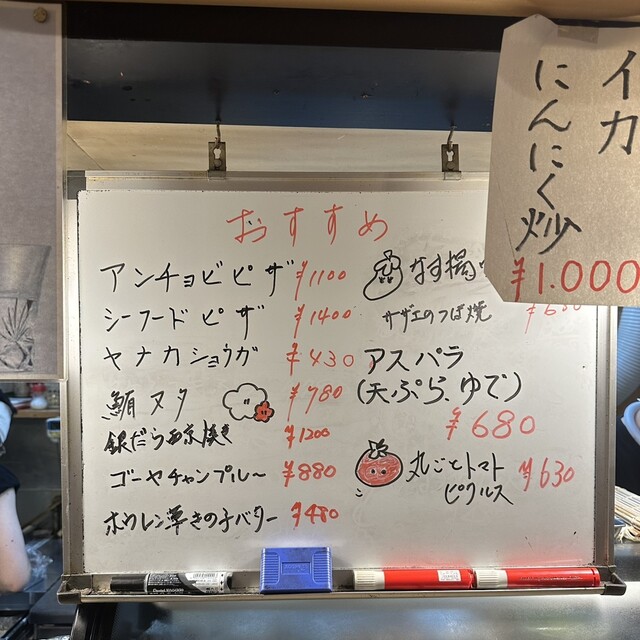 おすすめ
アンチョビピザ ¥1100
シーフードピザ ¥1400
ヤナカショウガ ¥430
鮪ヌタ ¥780
銀だら西京焼き ¥1200
ゴーヤチャンプルー ¥880
ホウレン草きの子バター ¥480
なす揚
サザエのつぼ焼
アスパラ
(天ぷら、ゆで)
¥680
丸ごとトマト
ピクルス
¥630
イカ
にんにく炒
¥1.000